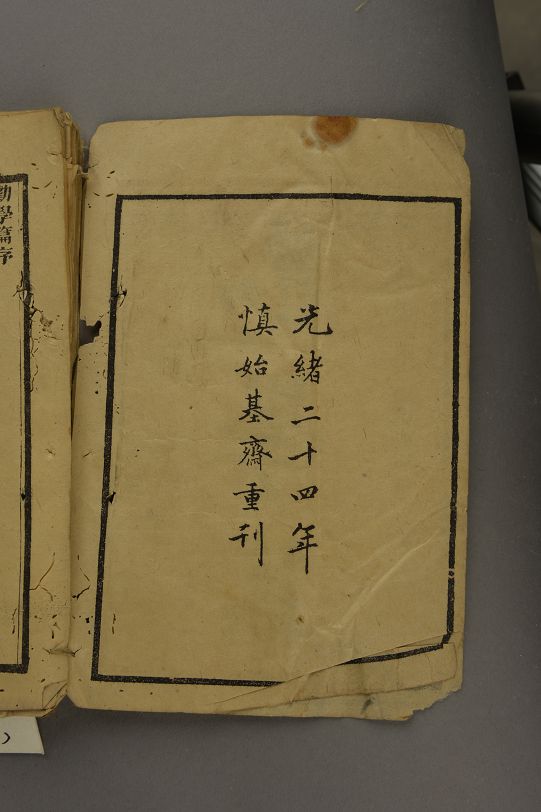 光緒二十四年
慎始基齋重刊
勸學篇序